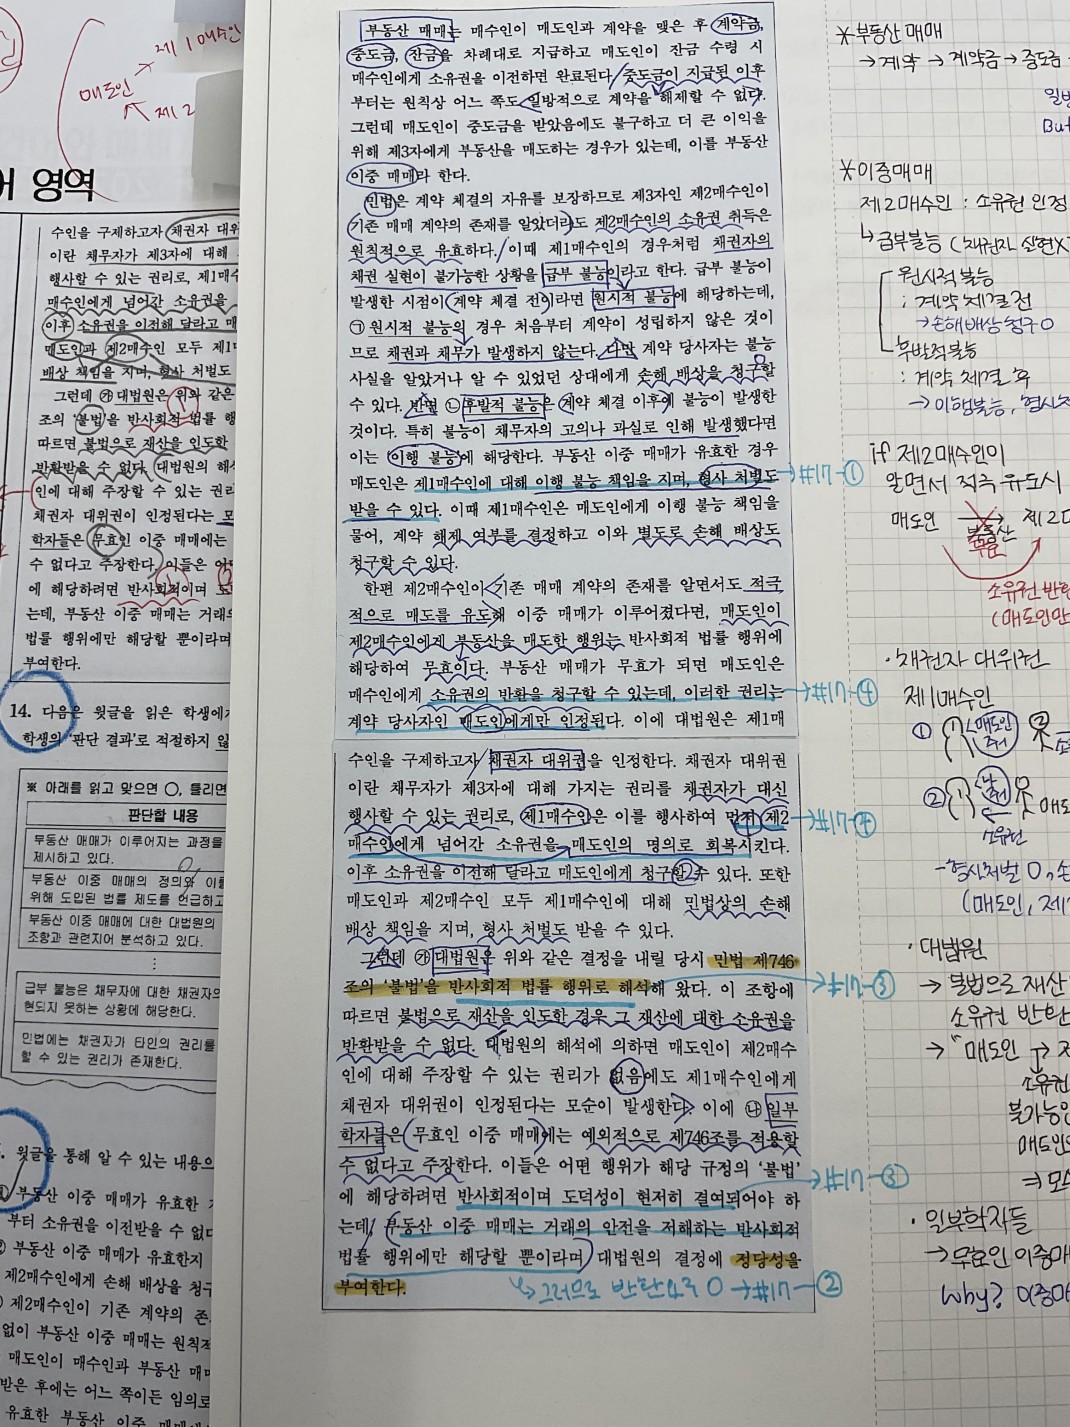 부동산 매매는 매수인이 매도인과 계약을 맺은 후 계약금,
중도금, 잔금을 차례대로 지급하고 매도인이 잔금 수령 시
매수인에게 소유권을 이전하면 완료된다. 중도금이 지급된 이후
부터는 원칙상 어느 쪽도 일방적으로 계약을 해제할 수 없다.
그런데 매도인이 중도금을 받았음에도 불구하고 더 큰 이익을
위해 제3자에게 부동산을 매도하는 경우가 있는데, 이를 부동산
이중 매매라 한다.
민법은 계약 체결의 자유를 보장하므로 제3자인 제2매수인이
기존 매매 계약의 존재를 알았더라도 제2매수인의 소유권 취득은
원칙적으로 유효하다. 이때 제1매수인의 경우처럼 채권자의
채권 실현이 불가능한 상황을 급부 불능이라고 한다. 급부 불능이
발생한 시점이 계약 체결 전이라면 원시적 불능에 해당하는데,
㉠ 원시적 불능의 경우 처음부터 계약이 성립하지 않은 것이
므로 채권과 채무가 발생하지 않는다. 다만 계약 당사자는 불능
사실을 알았거나 알 수 있었던 상대에게 손해 배상을 청구할
수 있다. 반면 ㉡ 후발적 불능은 계약 체결 이후에 불능이 발생한
것이다. 특히 불능이 채무자의 고의나 과실로 인해 발생했다면
이는 이행 불능에 해당한다. 부동산 이중 매매가 유효한 경우
매도인은 제1매수인에 대해 이행 불능 책임을 지며, 형사 처벌도 → #17-①
받을 수 있다. 이때 제1매수인은 매도인에게 이행 불능 책임을
물어, 계약 해제 여부를 결정하고 이와 별도로 손해 배상도
청구할 수 있다.
한편 제2매수인이 기존 매매 계약의 존재를 알면서도 적극
적으로 매도를 유도해 이중 매매가 이루어졌다면, 매도인이
제2매수인에게 부동산을 매도한 행위는 반사회적 법률 행위에
해당하여 무효이다. 부동산 매매가 무효가 되면 매도인은
매수인에게 소유권의 반환을 청구할 수 있는데, 이러한 권리는 → #17-④
계약 당사자인 매도인에게만 인정된다. 이에 대법원은 제1매
수인을 구제하고자 채권자 대위권을 인정한다. 채권자 대위권
이란 채무자가 제3자에 대해 가지는 권리를 채권자가 대신
행사할 수 있는 권리로, 제1매수인은 이를 행사하여 먼저 제2 → #17-④
매수인에게 넘어간 소유권을 매도인의 명의로 회복시킨다.
이후 소유권을 이전해 달라고 매도인에게 청구할 수 있다. 또한
매도인과 제2매수인 모두 제1매수인에 대해 민법상의 손해
배상 책임을 지며, 형사 처벌도 받을 수 있다.
그런데 ㉮ 대법원은 위와 같은 결정을 내릴 당시 민법 제746
조의 '불법'을 반사회적 법률 행위로 해석해 왔다. 이 조항에 → #17-③
따르면 불법으로 재산을 인도한 경우 그 재산에 대한 소유권을
반환받을 수 없다. 대법원의 해석에 의하면 매도인이 제2매수
인에 대해 주장할 수 있는 권리가 없음에도 제1매수인에게
채권자 대위권이 인정된다는 모순이 발생한다. 이에 ㉯ 일부
학자들은 무효인 이중 매매에는 예외적으로 제746조를 적용할
수 없다고 주장한다. 이들은 어떤 행위가 해당 규정의 '불법' → #17-③
에 해당하려면 반사회적이며 도덕성이 현저히 결여되어야 하
는데, 부동산 이중 매매는 거래의 안전을 저해하는 반사회적
법률 행위에만 해당할 뿐이라며 대법원의 결정에 정당성을
부여한다. 그러므로 반환요구 O → #17-②
매도인
제1매수인
제2
영역
수인을 구제하고자 채권자 대위
이란 채무자가 제3자에 대해
행사할 수 있는 권리로, 제1매수
매수인에게 넘어간 소유권을
이후 소유권을 이전해 달라고 매
매도인과 제2매수인 모두 제1
배상 책임을 지며, 형사 처벌도
그런데 ㉮ 대법원은 위와 같은
조의 '불법'을 반사회적 법률 행
따르면 불법으로 재산을 인도한
반환받을 수 없다. 대법원의 해석
인에 대해 주장할 수 있는 권리
채권자 대위권이 인정된다는 모
학자들은 무효인 이중 매매에는
수 없다고 주장한다. 이들은 어
에 해당하려면 반사회적이며 도
는데, 부동산 이중 매매는 거래의
법률 행위에만 해당할 뿐이라며
부여한다.
14. 다음은 윗글을 읽은 학생에
학생의 '판단 결과'로 적절하지 않
※ 아래를 읽고 맞으면 ○, 틀리면
판단할 내용
부동산 매매가 이루어지는 과정을
제시하고 있다.
부동산 이중 매매의 정의와 이를
위해 도입된 법률 제도를 언급하고
부동산 이중 매매에 대한 대법원의
조항과 관련지어 분석하고 있다.
⋮
급부 불능은 채무자에 대한 채권자의
현되지 못하는 상황에 해당한다.
민법에는 채권자가 타인의 권리를
할 수 있는 권리가 존재한다.
윗글을 통해 알 수 있는 내용으
① 부동산 이중 매매가 유효한
부터 소유권을 이전받을 수 없다
② 부동산 이중 매매가 유효한지
제2매수인에게 손해 배상을 청구
제2매수인이 기존 계약의 존
없이 부동산 이중 매매는 원칙적
매도인이 매수인과 부동산 매매
받은 후에는 어느 쪽이든 임의로
유효한 부동산 이중 매매에
* 부동산 매매
→ 계약 → 계약금 → 중도금
But
* 이중매매
제2매수인 : 소유권 인정
↳ 급부불능 (채권자 실현X
원시적불능
: 계약 체결 전
→ 손해배상 청구 O
후발적불능
: 계약 체결 후
→ 이행불능, 형사처
if 제2매수인이
알면서 적극 유도시
매도인 → 제2
부동산
무효
소유권 반환
(매도인만
· 채권자 대위권
제1매수인
①
매도인
줘
②
나
줘
소유권
- 형사처벌 O, 손
(매도인, 제
· 대법원
→ 불법으로 재산
소유권 반환
→ "매도인 → 제
소유권
불가능인
매도인
⇒ 모순
· 일부학자들
→ 무효인 이중매
Why? 이중매